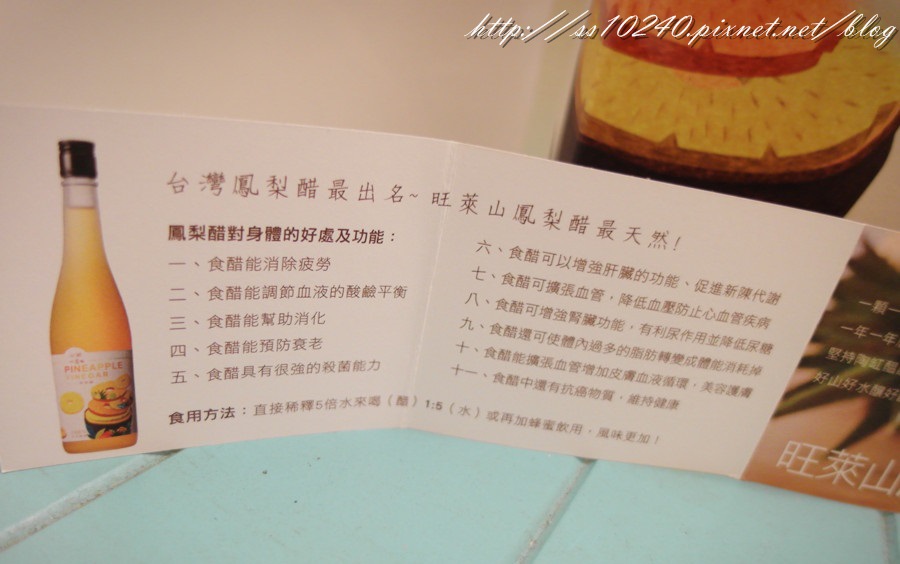 http://ss10240.pixnet.net/blog
台灣鳳梨醋最出名~旺萊山鳳梨醋最天然!
鳳梨醋對身體的好處及功能：
一、食醋能消除疲勞
二、食醋能調節血液的酸鹼平衡
三、食醋能幫助消化
四、食醋能預防衰老
五、食醋具有很強的殺菌能力
六、食醋可以增強肝臟的功能、促進新陳代謝
七、食醋可擴張血管，降低血壓防止心血管疾病
八、食醋可增強腎臟功能，有利尿作用並降低尿糖
九、食醋還可使體內過多的脂肪轉變成體能消耗掉
十、食醋能擴張血管增加皮膚血液循環，美容護膚
十一、食醋中還有抗癌物質，維持健康
食用方法：直接稀釋5倍水來喝（醋）1:5（水）或再加蜂蜜飲用，風味更加！
PINEAPPLE
VINEGAR
一顆一
一年一年
堅持陶缸
好山好水釀好
旺萊山